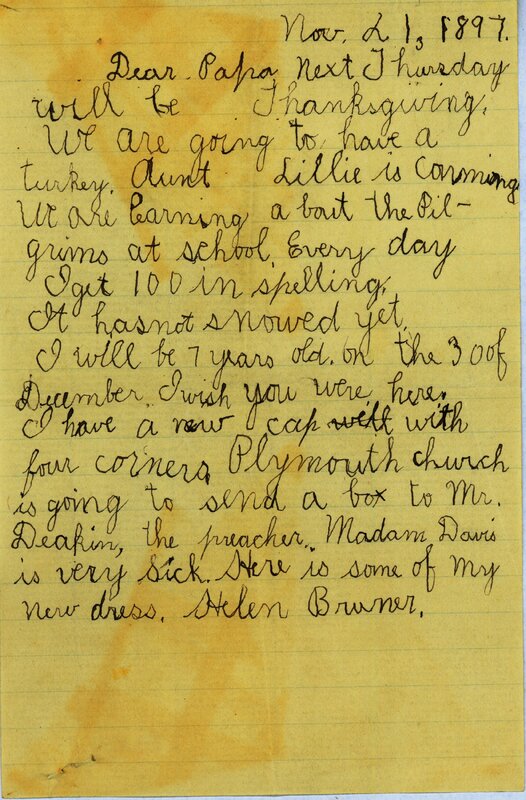 Nov. 21, 1897.
Dear Papa Next Thursday
will be Thanksgiving.
We are going to have a
turkey. Aunt Lillie is Comming
We are learning a bout the Pil-
grims at school. Every day
I get 100 in spelling.
It hasnot snowed yet.
I will be 7 years old. on the 30 of
December. I wish you were here.
I have a new cap well with
four corners. Plymouth church
is going to send a box to Mr.
Deakin, the preacher. Madam Davis
is very sick. Here is some of my
new dress. Helen Bruner.